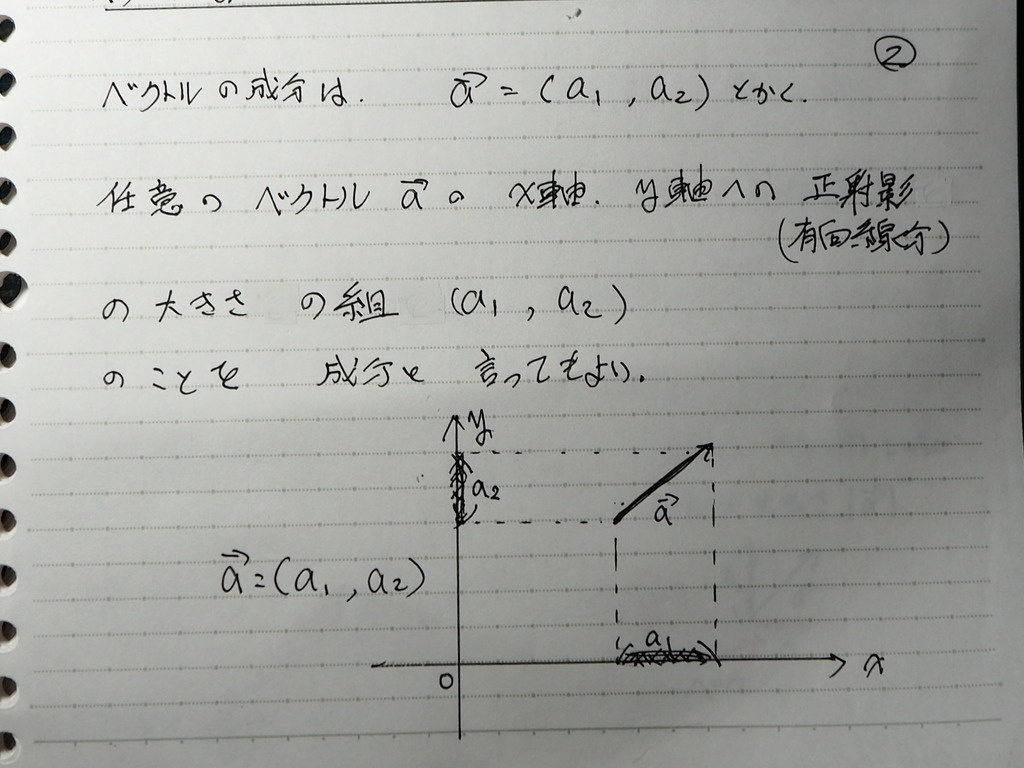 ②
ベクトルの成分は. a⃗ = (a₁ , a₂) とかく.
任意の ベクトル a⃗ の x軸. y軸への 正射影
(有向線分)
の大きさ の組 (a₁ , a₂)
のことを 成分と 言ってもよい.
y
a₂
a⃗
a⃗ = (a₁ , a₂)
a₁
0
x